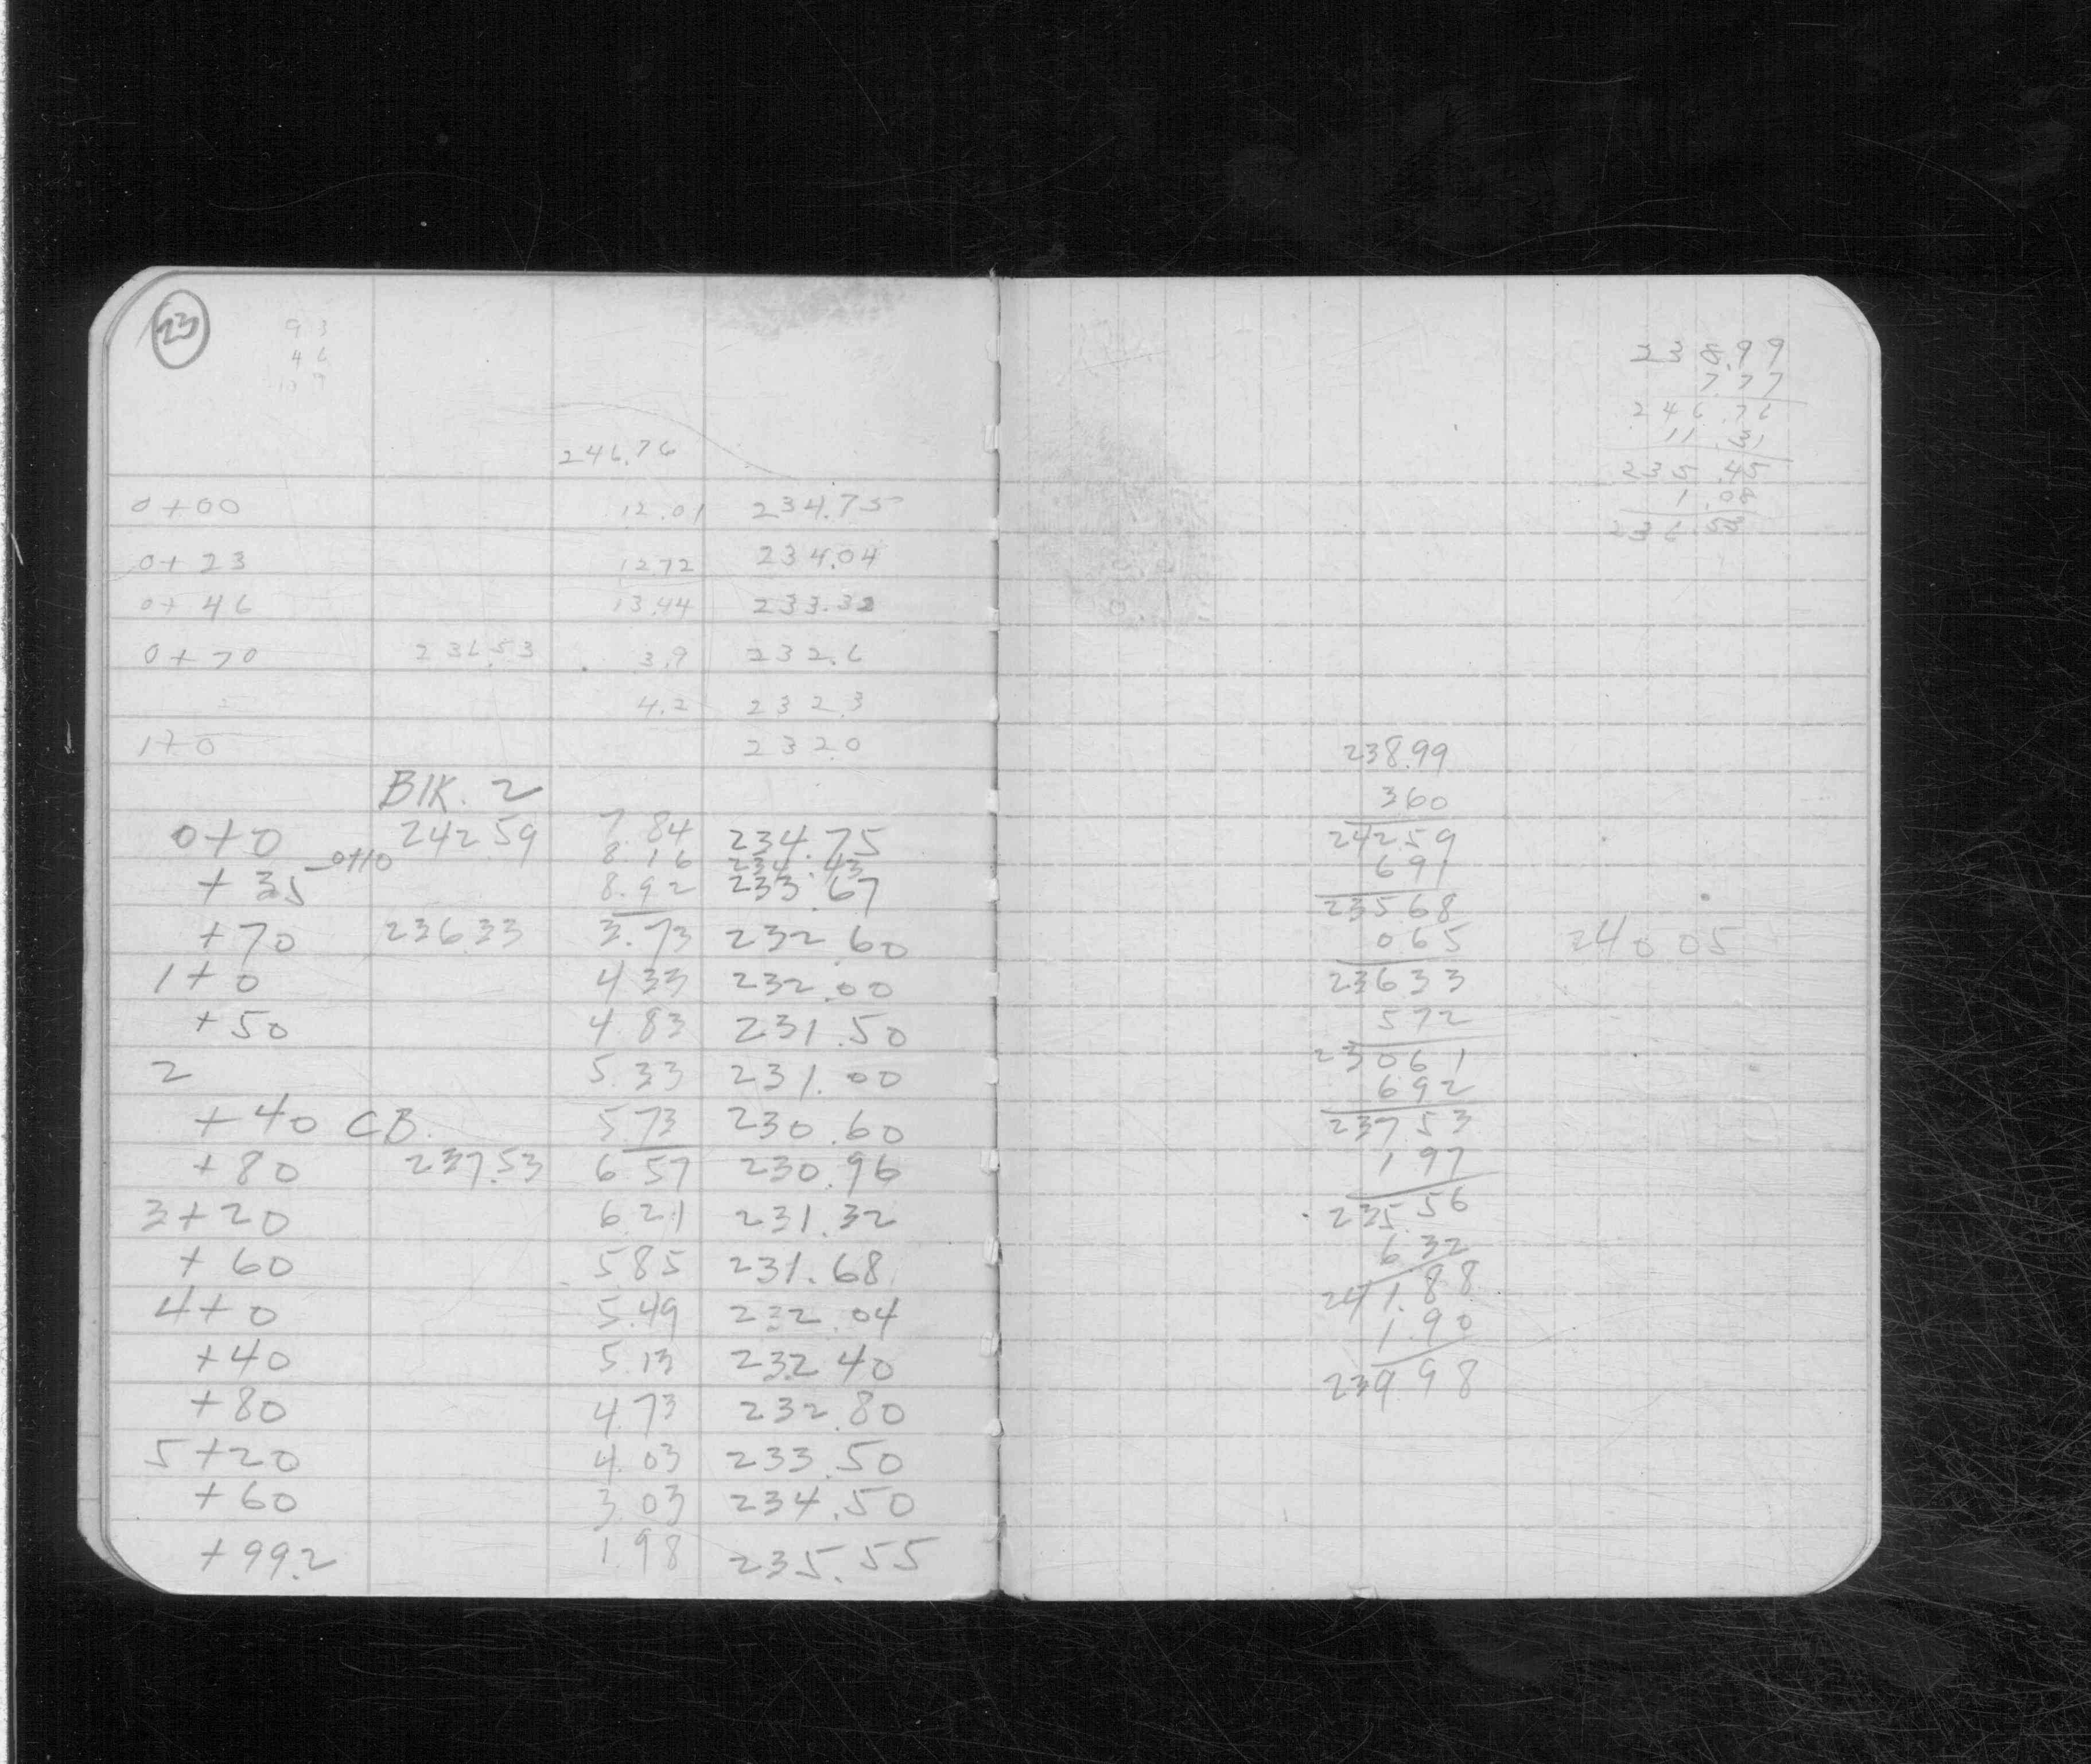 23
9 3
4 6
10 9
246.76
0+00 12.01 234.75
0+23 12.72 234.04
0+46 13.44 233.32
0+70 236.53 3.9 232.6
4.2 232.3
1+0 232.0
Blk. 2
0+0 242 59 7 84 234.75
0+10 8.16 234.43
+35 8.92 233.67
+70 236 33 3.73 232 60
1+0 4 33 232.00
+50 4.83 231.50
2 5.33 231.00
+40 CB. 5.73 230.60
+80 237.53 6 57 230.96
3+20 6 21 231.32
+60 5 85 231.68
4+0 5.49 232.04
+40 5.13 232 40
+80 4.73 232 80
5+20 4.03 233.50
+60 3 03 234.50
+99.2 1.98 235.55
238.99
7.77
246.76
11
235.45
1.08
236.53
238.99
360
242 59
6 91
235 68
0 65
240 05
236 33
5 72
230 61
6 92
237 53
1 97
235.56
6 32
241.88
1.90
239 98